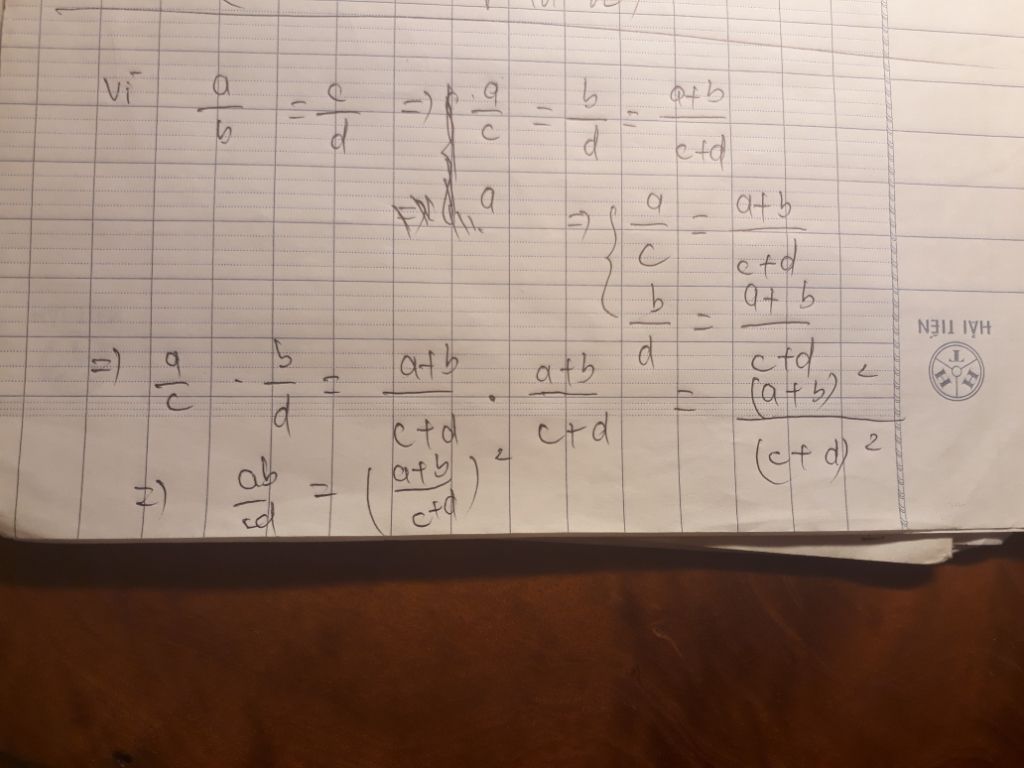 Vì a/b = c/d => a/c = b/d = a+b/c+d
a => { a/c = a+b/c+d
b/d = a+b/c+d
=> a/c . b/d = a+b/c+d . a+b/c+d = (a+b)²/(c+d)²
=> ab/cd = (a+b/c+d)²
HẢI TIẾN